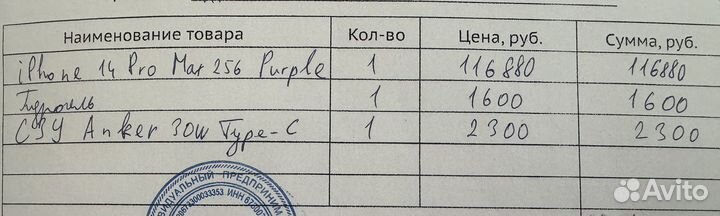 Наименование товара Кол-во Цена, руб. Сумма, руб.
iPhone 14 Pro Max 256 Purple 1 116 880 116880
Гидрогель 1 1600 1600
СЗУ Anker 30W Type-C 1 2300 2300
ИНДИВИДУАЛЬНЫЙ ПРЕДПРИНИМ
ИНН
Avito